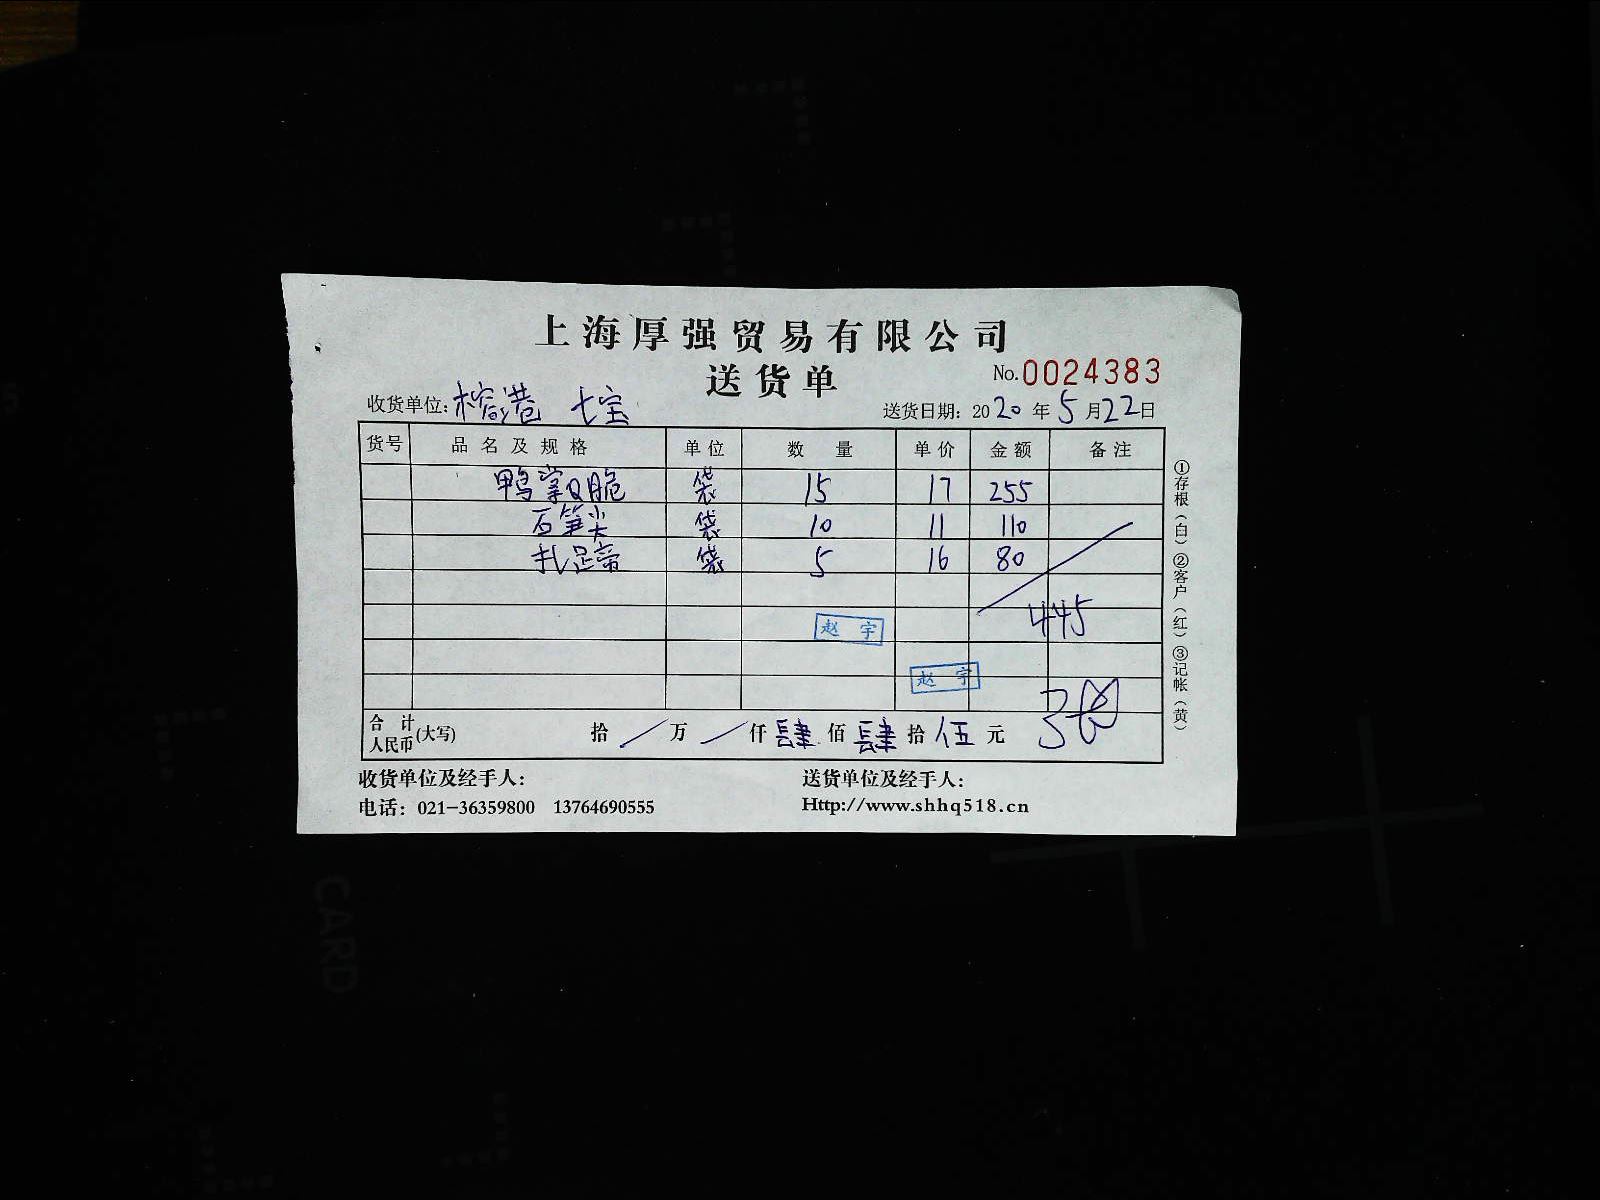 上海厚强贸易有限公司
送货单
No.0024383
收货单位:榕港 七宝
送货日期: 2020年5月22日
货号 品名及规格 单位 数量 单价 金额 备注
鸭掌Q脆 袋 15 17 255
石笋尖 袋 10 11 110
扎足帝 袋 5 16 80
445
赵宇
赵宇
合计人民币(大写) 拾/万/仟肆佰肆拾伍元
收货单位及经手人:
送货单位及经手人:
电话: 021-36359800 13764690555
Http://www.shhq518.cn
①存根(白)②客户(红)③记帐(黄)
CARD